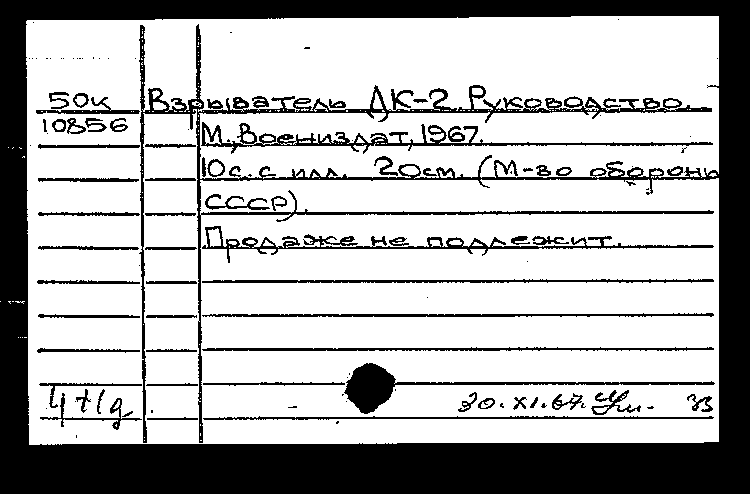 50к Взрыватель ДК-2. Руководство.
10856 М., Воениздат, 1967.
10 с. с илл. 20см. (М-во обороны
СССР).
Продаже не подлежит.
4 + 1д 30.XI.67.